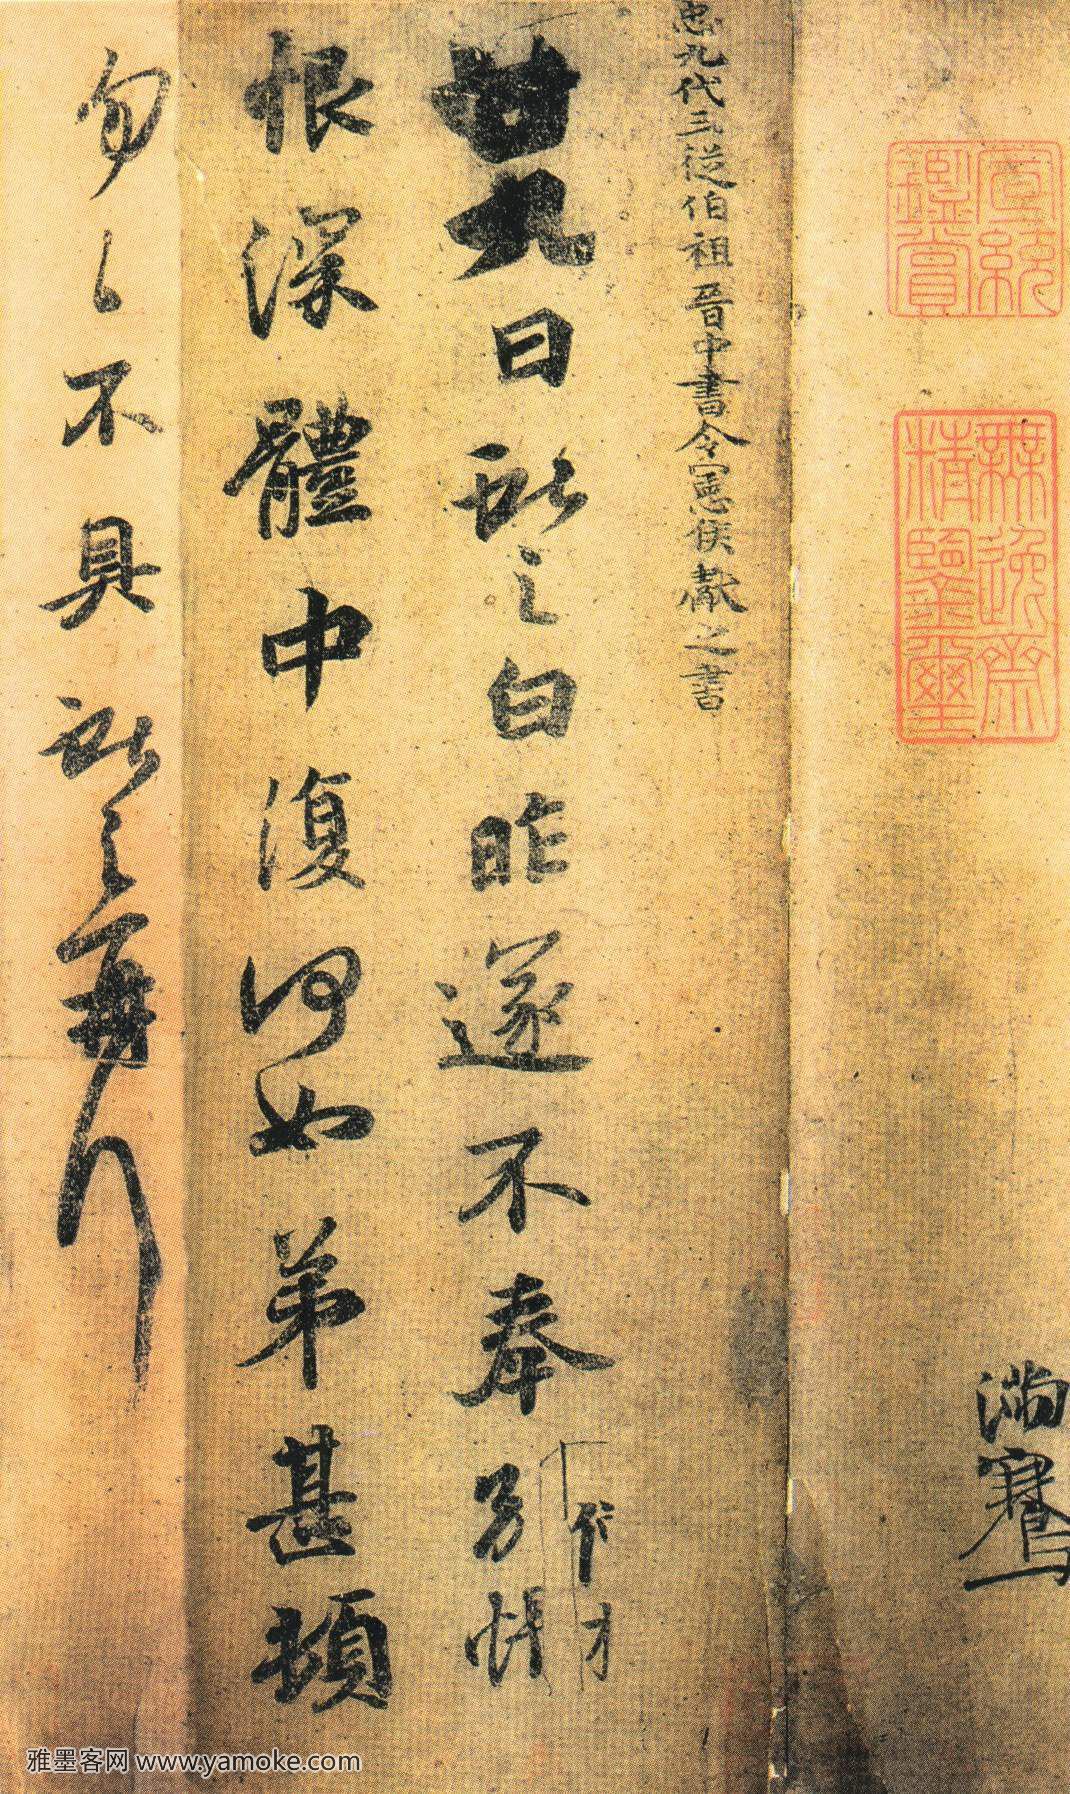 宣統鑒賞
無逸齋精鑒璽
滿騫
臣九代三從伯祖晉中書令憲侯獻之書
廿九日獻之白昨遂不奉別悵
恨深體中復何如弟甚頓
匆匆不具獻之再拜
雅墨客网 www.yamoke.com